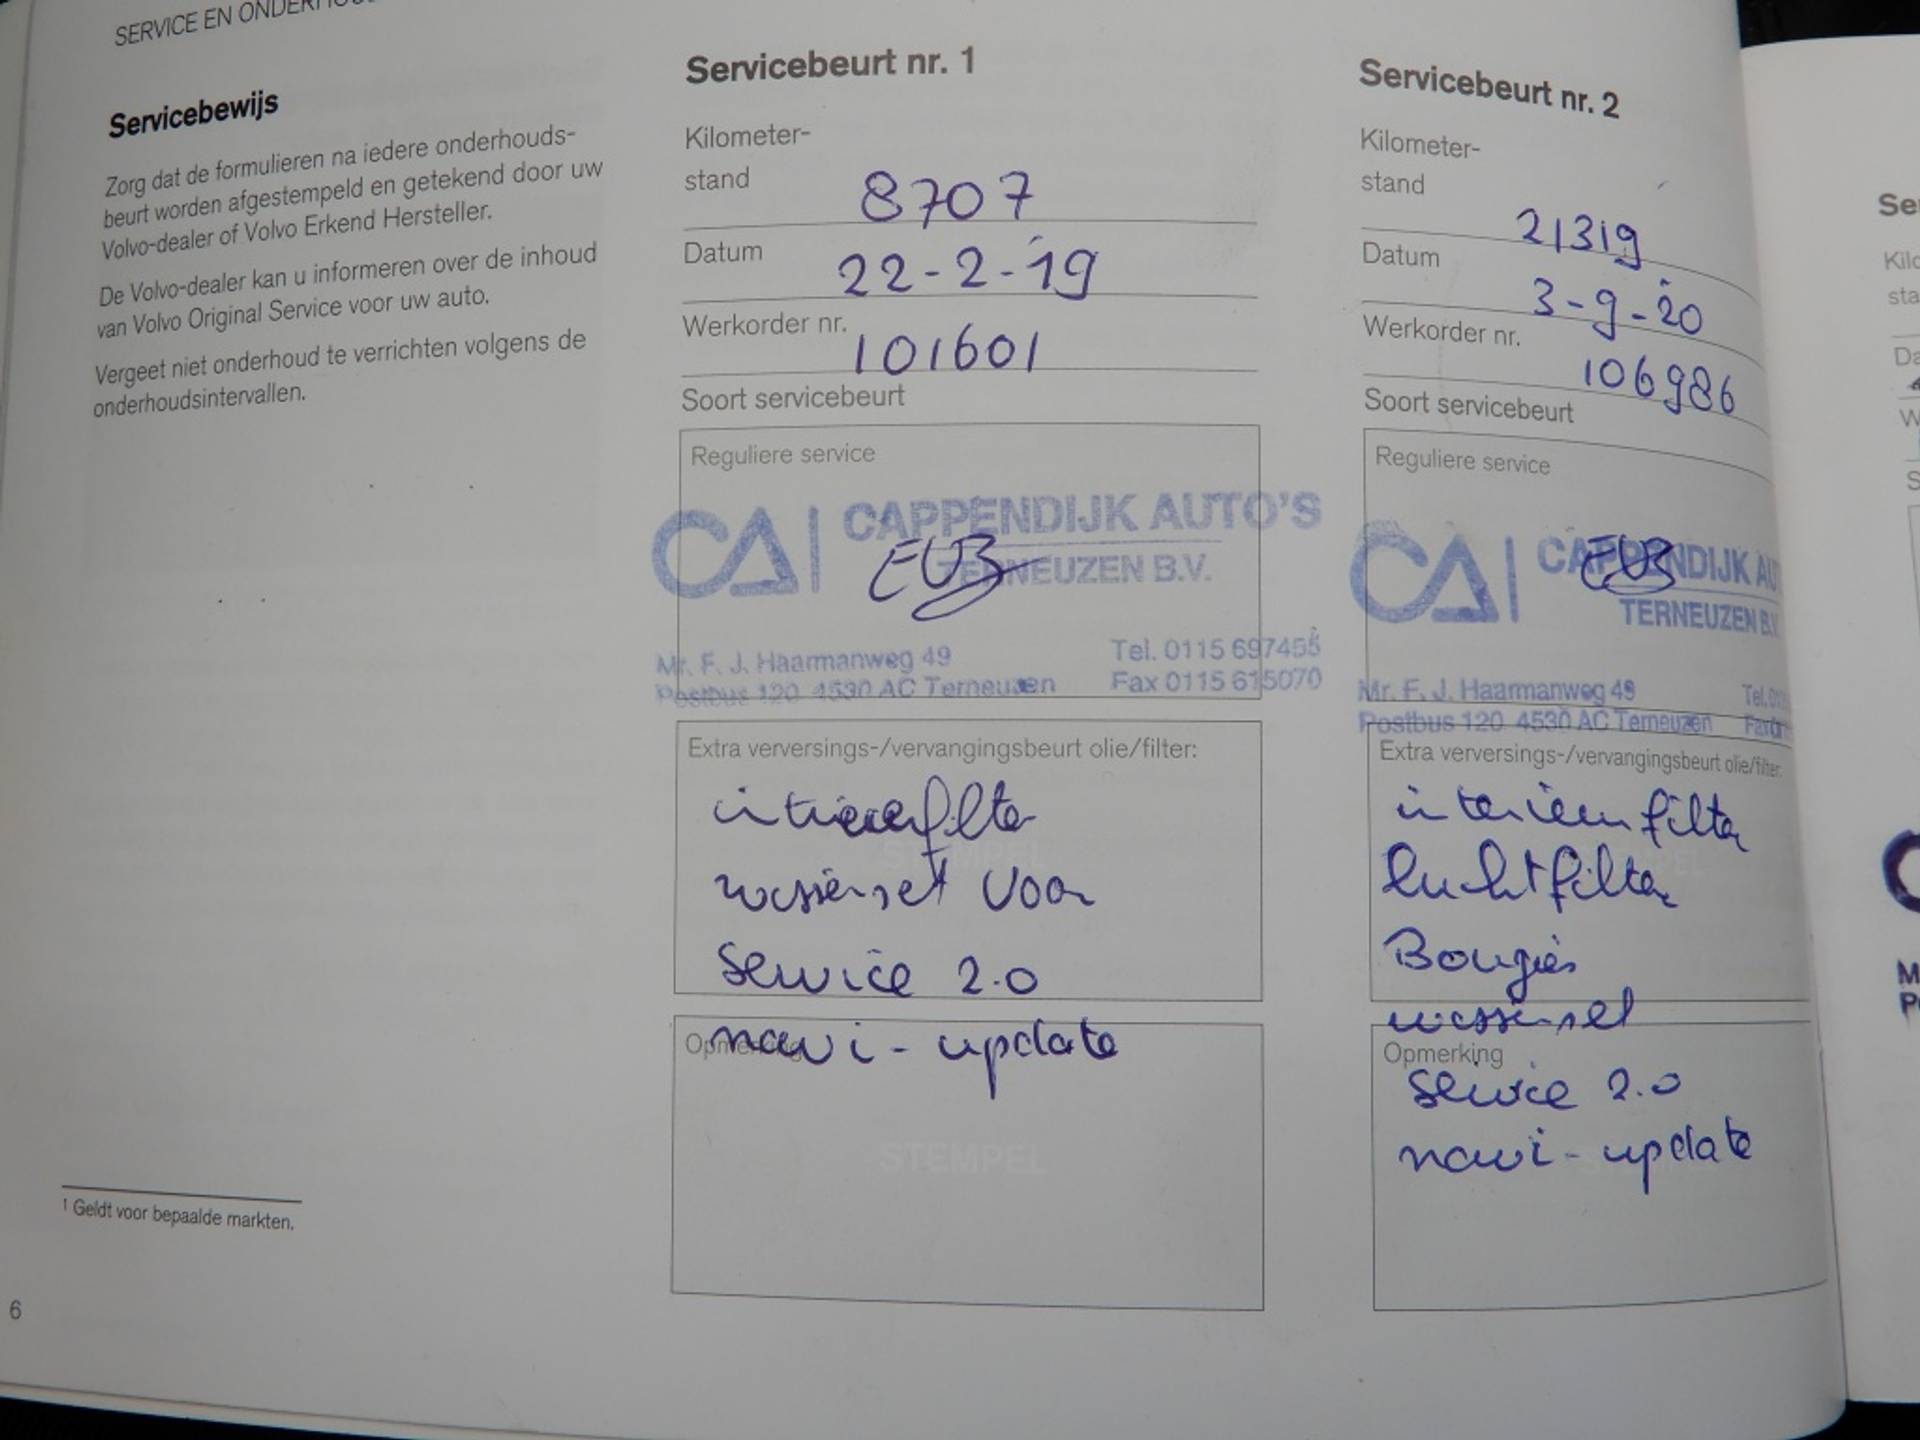 SERVICE EN
Servicebewijs
Zorg dat de formulieren na iedere onderhouds-
beurt worden afgestempeld en getekend door uw
Volvo-dealer of Volvo Erkend Hersteller.
De Volvo-dealer kan u informeren over de inhoud
van Volvo Original Service voor uw auto.
Vergeet niet onderhoud te verrichten volgens de
onderhoudsintervallen.
1 Geldt voor bepaalde markten.
6
Servicebeurt nr. 1
Kilometer-
stand
8707
Datum 22-2-'19
Werkorder nr. 101601
Soort servicebeurt
Reguliere service
CA CAPPENDIJK AUTO'S
TERNEUZEN B.V.
Mr. F. J. Haarmanweg 49 Tel. 0115 697455
Postbus 120 4530 AC Terneuzen Fax 0115 615070
Extra verversings-/vervangingsbeurt olie/filter:
STEMPEL
wasserset voor
service 2.0
Opmerking
navi-update
STEMPEL
Servicebeurt nr. 2
Kilometer-
stand
21319
Datum 3-9-20
Werkorder nr. 106986
Soort servicebeurt
Reguliere service
CA CAPPENDIJK
TERNEUZEN B.V.
Mr. F. J. Haarmanweg 49 Tel.
Postbus 120 4530 AC Terneuzen
Extra verversings-/vervangingsbeurt olie/filter:
interieurfilter
luchtfilter
Bougies
wasserset
Opmerking
service 2.0
navi-update